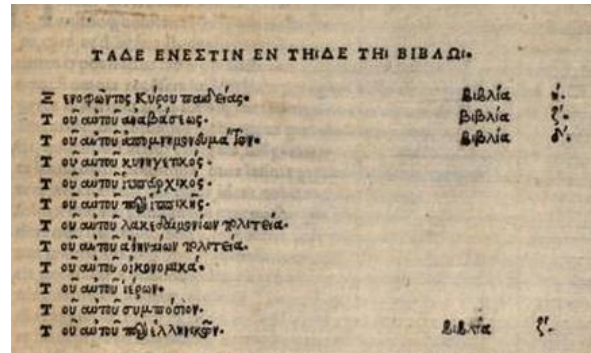 ΤΑΔΕ ΕΝΕΣΤΙΝ ΕΝ ΤΗΙΔΕ ΤΗΙ ΒΙΒΛΩΙ.
Ξενοφῶντος Κύρου παιδείας. Βιβλία ή.
Τοῦ αὐτοῦ ἀναβάσεως. βιβλία ζ́.
Τοῦ αὐτοῦ ἀπομνημονευμάτων. βιβλία δ́.
Τοῦ αὐτοῦ κυνηγετικός.
Τοῦ αὐτοῦ ἱππαρχικός.
Τοῦ αὐτοῦ περὶ ἱππικῆς.
Τοῦ αὐτοῦ λακεδαιμονίων πολιτεία.
Τοῦ αὐτοῦ ἀθηναίων πολιτεία.
Τοῦ αὐτοῦ οἰκονομικά.
Τοῦ αὐτοῦ ἱέρων.
Τοῦ αὐτοῦ συμπόσιον.
Τοῦ αὐτοῦ περὶ ἑλληνικῶν. Βιβλία ζ́.